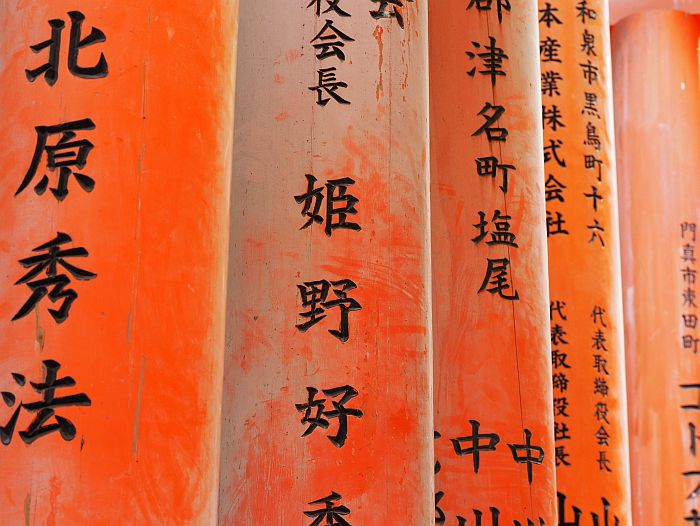 門真市
田町
和泉市黒鳥町十六
代表取締役会長 山
本産業株式会社
代表取締役社長 山
郡津名町塩尾
中
中川
役会長 姫野好秀
北原秀法